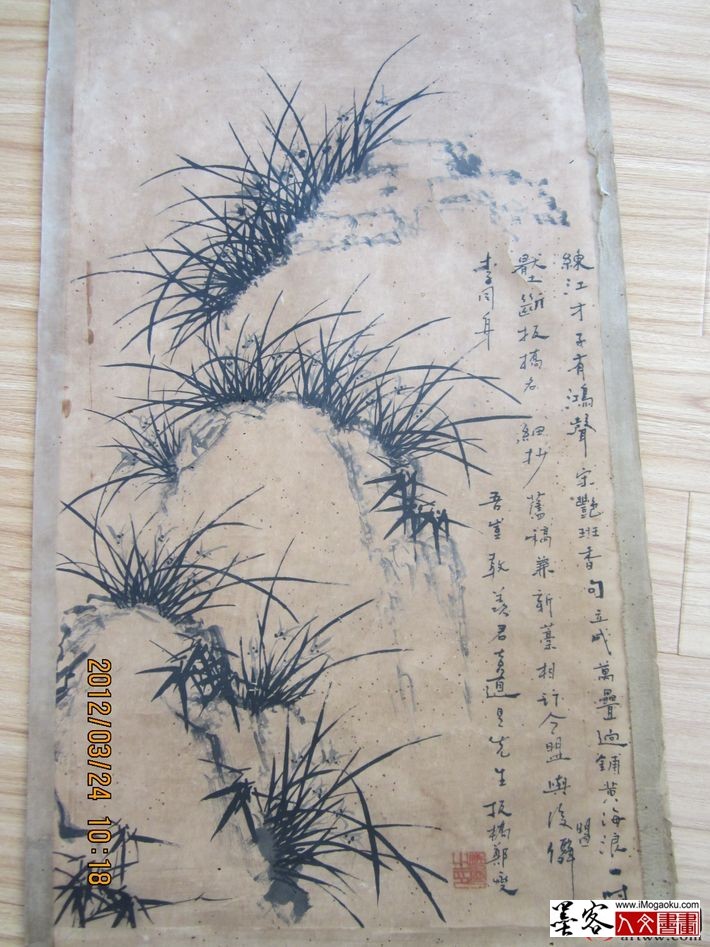 練江才子有鴻聲宋艷班香句立成萬疊迴鋪黃海浪一時
壓斷板橋名細抄舊稿兼新藁相訂今盟與後盟
李同身
吾豈敢羨君
先生板橋鄭燮
2012/03/24 10:18
www.iMogaoku.com
墨客人文書畫
artww.com